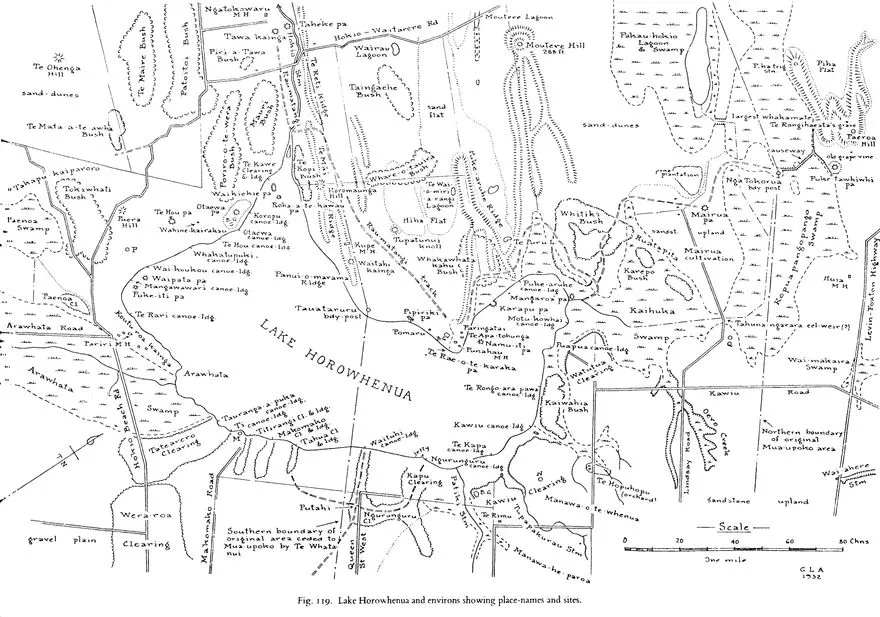 Ngatokowaru
M H
Taheke pa
Tawa kainga
Hokio - Waitarere Rd
Moutere Lagoon
Moutere Hill
288 ft
Wairau
Lagoon
Piri-a-Tawa
Bush
Te Maire Bush
Patoitoi Bush
Te Ohenga
Hill
sand-dunes
Pakau-hokio
Lagoon
& Swamp
Piha
Flat
Taingache
Bush
sand
flat
sand-dunes
largest whakamate
Te Rangihaeata's grave
Paeroa
Hill
causeway
old grapevine
Te Mata-a-te awha
Bush
Te Kawe
Clearing
& ldg
Te Kopi
Bush
Horomaunga
Ridge
Te Wai
o miri
a rangi
Lagoon
Pike aruhe Ridge
plantation
Nga Tokorua
bdy post
Puketawhiwhi
pa
Takapu kaiparoro
Tokiwhati
Bush
Waikiekie pa
Otaewa
pa
Koropu
canoe-ldg
Roha a-te-kawau
pa
Hiha Flat
Whitiki
Bush
Mairua
pa
sandst.
upland
Mairua
cultivation
Paenoa
Swamp
Puera
Hill
Te Hou pa
Wahine-kairakau
Otaewa
canoe-ldg
Te Hou canoe-ldg
Kupe
M H
Tupatunui
knoll
Te Puru
Karepo
Bush
Kopus pangopango
Swamp
Levin-Foxton Highway
Huia
M H
Whakatupuki
canoe-ldg
Waitahi
kainga
Whakawhata
kahu
Bush
Panui-o-marama
Ridge
Rauawatangi
track
P
Wai-kukou canoe-ldg
Waipata pa
Mangawawari canoe-ldg
Puke-iti pa
Puke-aruhe
canoe-ldg
Mangaroa pa
Karapu pa
Motu-kowhai
canoe-ldg
Kaihuka
Swamp
Paenoa
Cl
Tauataruru
bdy-post
Pipiriki
pa
Te Rari canoe-ldg
Pomare
Paringatai
Te Apa-tohunga
Namu-iti
pa
Punahau
M H
Tahuna-ngarara eel-weir(?)
Arawhata Road
LAKE HOROWHENUA
Te Rae-o-te-karaka
pa
Puapua canoe-ldg
Watutua
Clearing
Wai-makaira
Swamp
Pariri M H
Arawhata
Arawhata
Te Rongo-ara pawa
canoe-ldg
Kawiu Road
Kaiwahia
Bush
Swamp
Tauranga-a puka
canoe-ldg
Ti
canoe-ldg
Hirirangi Cl & ldg
Makomako
Cl & ldg
Tahua Cl
& ldg
Kawiu canoe-ldg
Hokio Beach Rd
Tatearero
Clearing
Waituhi
canoe-ldg
Te Kapa
canoe-ldg
Oero
Creek
Northern boundary
of original
Mua-upoko area
jetty
Ngurunguru
canoe-ldg
Kapu
Clearing
Te Hopuhopu
(orchard)
Lindsay Road
Waiwhere
Stm
Kawiu
Clearing
Patiki Stm
Manawa-o-te-whenua
sandstone upland
Putahi
Ngurunguru
Cl
Te Rimu
Wera-roa
Clearing
gravel plain
Makomako Road
Southern boundary of
original area ceded to
Mua-upoko by Te Whata
nui
Queen
St West
Manawa-he-paroa
Scale
0 20 40 60 80 Chns
One mile
G L A
1932
Fig. 119. Lake Horowhenua and environs showing place-names and sites.